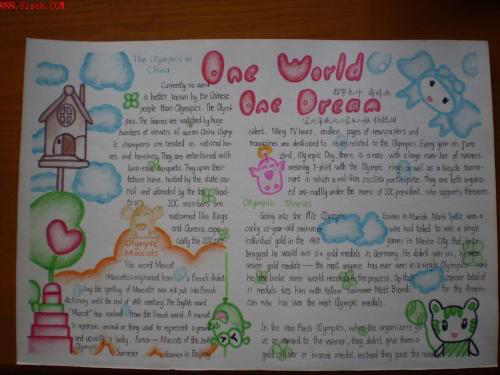 www.51scb.COM
One World
One Dream
The Olympics in
China
Currently no word
is better known by the Chinese
people than Olympics. The Olym-
pics. The Games are watched by huge
numbers of viewers all across China. Olymp-
ic champions are treated as national her-
oes and heroines. They are entertained with
banquets. They upon their
return home, hosted by the state coun-
cil and attended by the
IOC members are
welcomed like Kings
and Queens, especia-
lly the IOC pre-
sident. Many TV hours, endless pages of newspapers and
magazines are dedicated to issues related to the Olympics. Every year on June
23rd, Olympic Day, there is a race with a large number of runners
wearing T-shirt with the Olympic ring, as well as a bicycle touram-
ent in which a million cyclists participate. They are both organiz-
ed annually under the name of IOC president, who supports the events.
Olympic
Mascots
The word Mascot
(Mascotte) originated from a French dialect,
but the spelling of Mascotte was not put into French
dictionary until the end of 19th century. The English word
"Mascot" has evolved from the French word. A mascot
is a person, animal or thing used to represent a group
and usually is lucky. Fuwa — Mascots of the 2008
Olympic Summer Games in Beijing
Olympic Stories
Going into the 1972 Olympic Games in Munich, Mark Spitz was a
cocky 22-year-old swimmer who had failed to win a single
individual gold in the 1968 games in Mexico City. But Spitz
bragged he would win six gold medals in Germany. He didn't win six, he won
seven gold medals — the most anyone has ever won in a single Olympics — and
he broke seven world records in the process. Spitz's career total of
11 medals ties him with fellow swimmer Matt Biondi for the Ameri-
can who has won the most Olympic medals.
In the 1900 Paris Olympics, when the organizers ga-
ve an award to the winner, they didn't give them a
gold, silver or bronze medal, instead they gave the winner